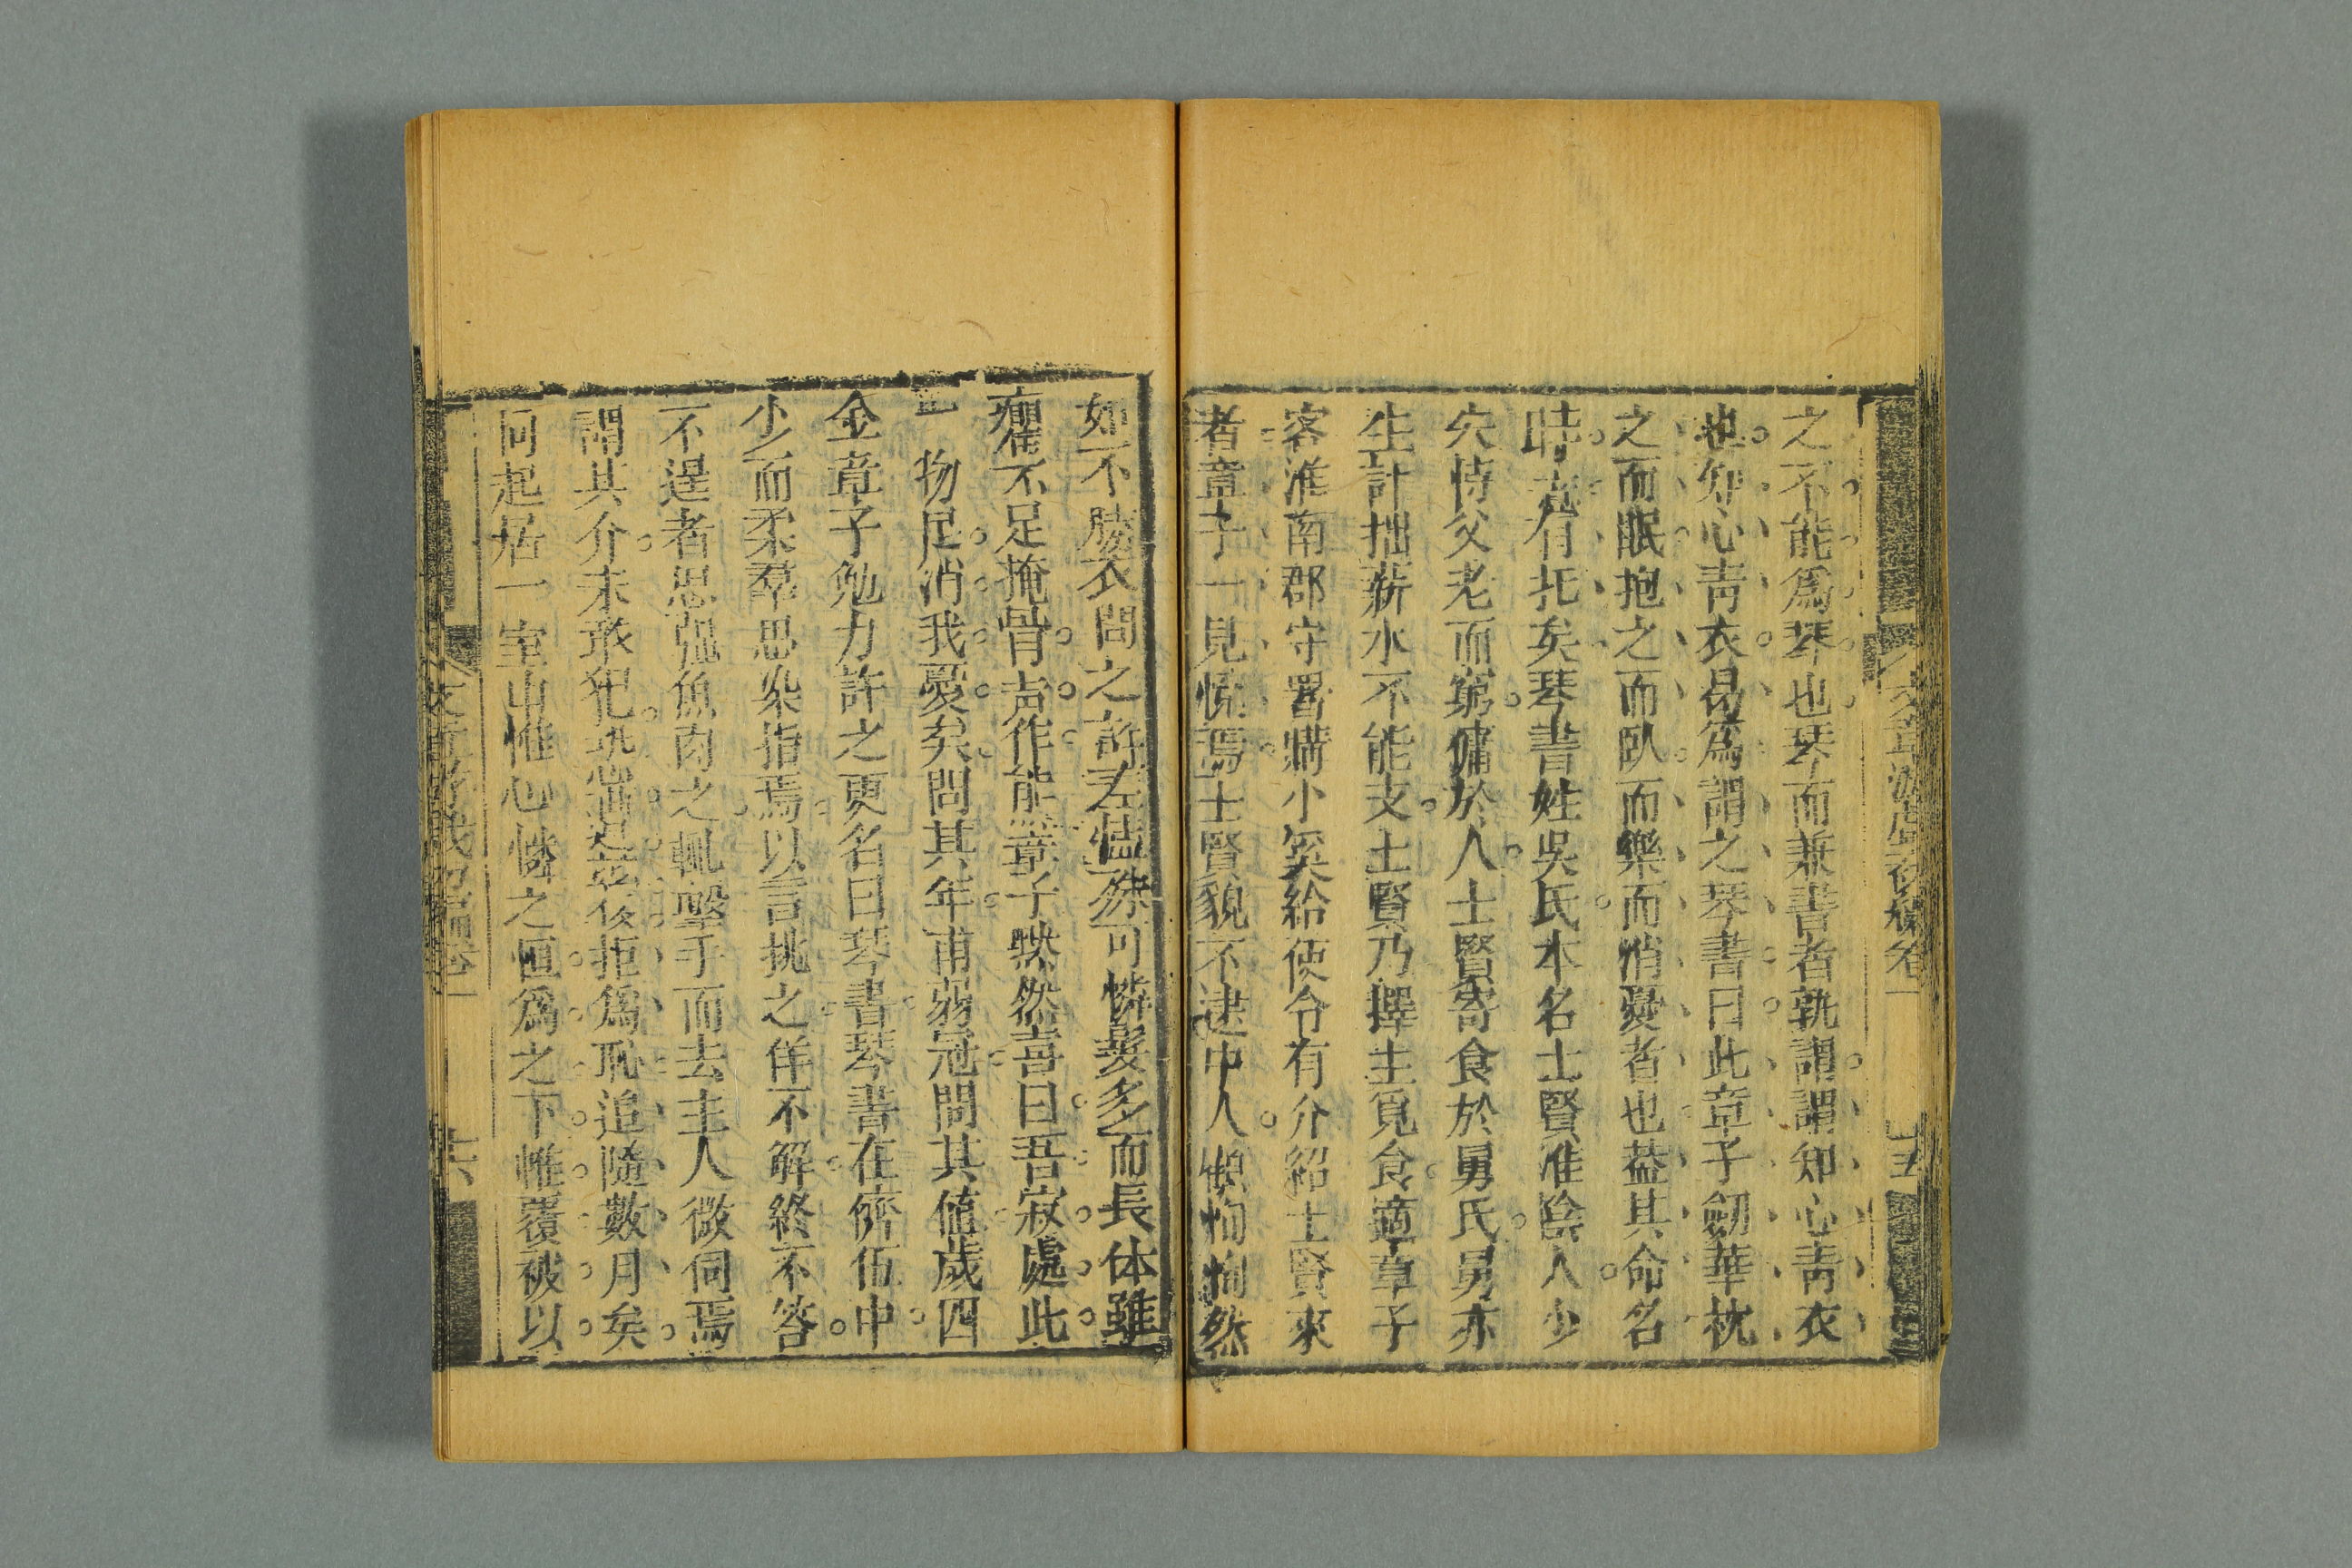 之不能爲琴也琴而兼書者孰謂謂知心靑衣
也知心靑衣曷爲謂之琴書曰此章子劒華枕
之而眠抱之而臥而樂而消憂者也葢其命名
時意有托矣琴書姓吳氏本名士賢淮陰人少
失恃父老而窮傭於人士賢寄食於舅氏舅亦
生計拙薪水不能支士賢乃擇主覓食適章子
客淮南郡守署購小奚給使令有介紹士賢來
者章子一見憮焉士賢貌不逮中人惧恂恂然
如不勝衣問之訴恚慥然可憐髮多而長体雖
癯不足掩骨声作能章子㬠然喜曰吾寂處此
物足消我憂矣問其年甫弱冠問其值歲四
金章子勉力許之更名曰琴書琴書在儕伍中
少而柔羣思染指焉以言挑之佯不解終不答
不逞者思强魚肉之輒擊手而去主人微伺焉
謂其介未敢犯拒爲恥追隨數月矣
同起居一室中惟心憐之恒爲之下帷覆被以
十五
卷一